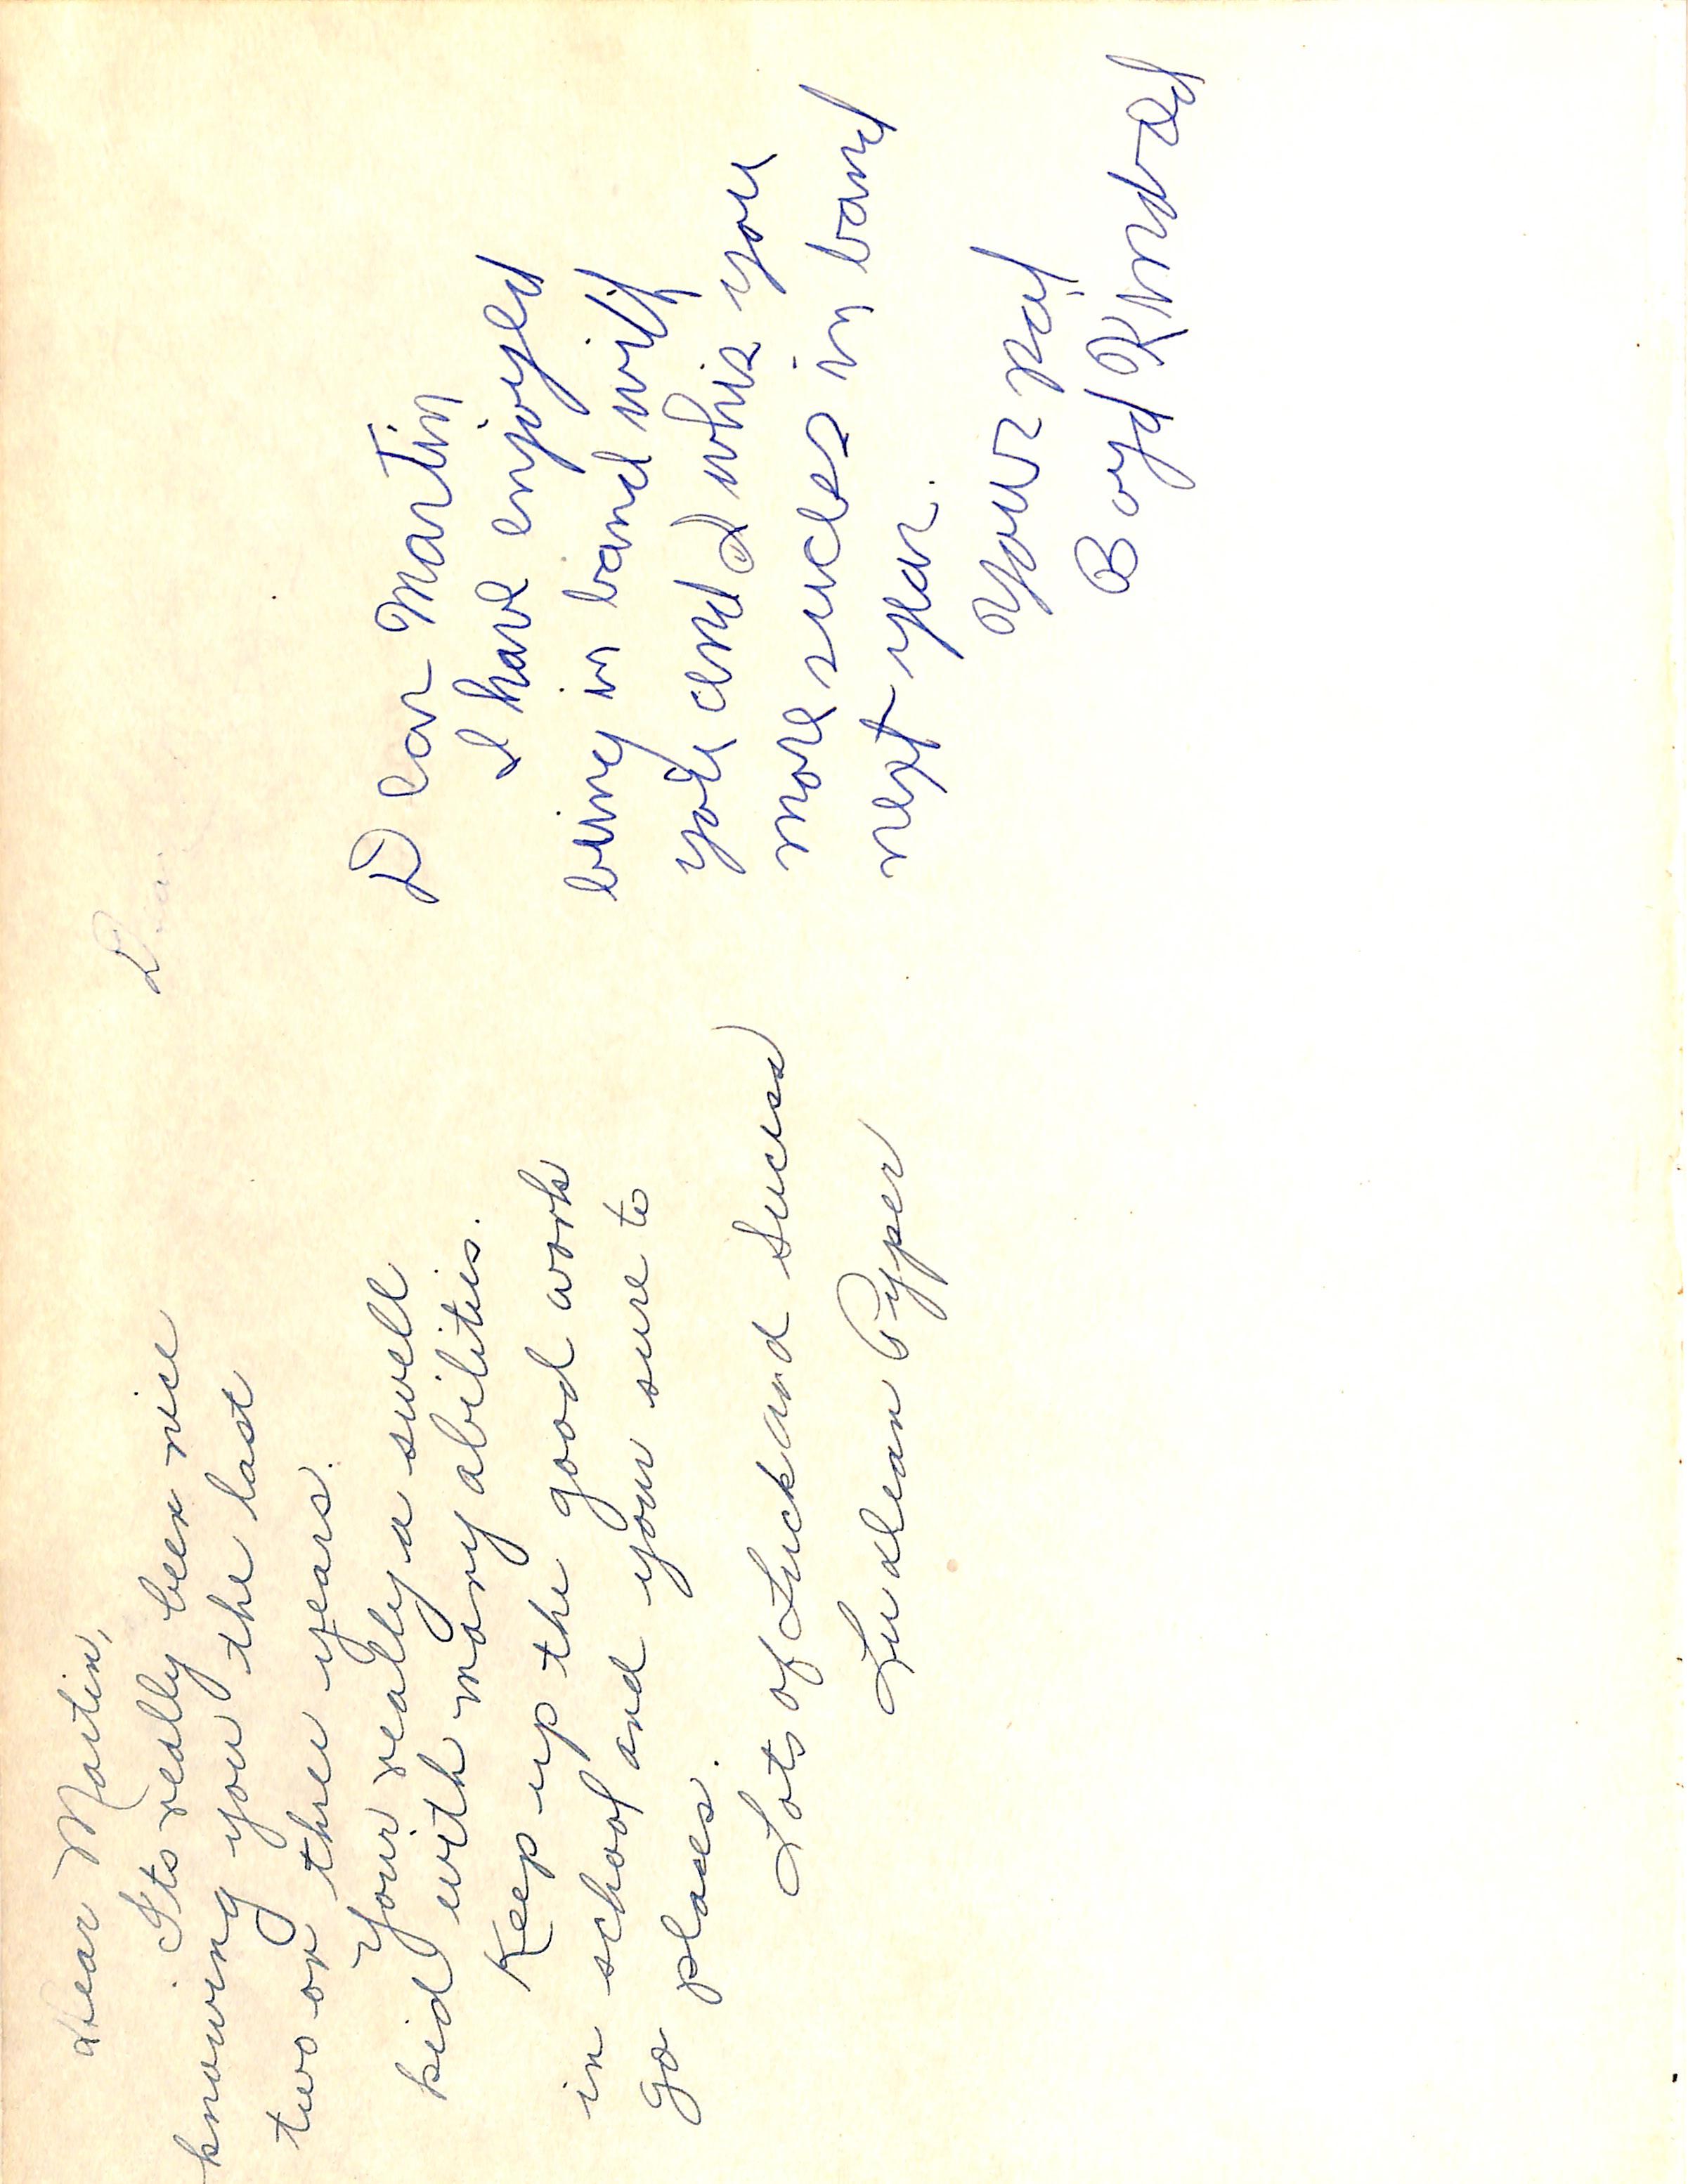 Dear Martin,
Its really been nice
knowing you the last
two or three years.
Your really a swell
kid with many abilitis.
Keep up the good work
in school and your sure to
go places.
Lots of Luck and Sucess
Ludean Pyper
Dear Martin
I have enjoyed
being in band with
you and I whis you
more succes in band
next year.
Your pal
Boyd Kindred